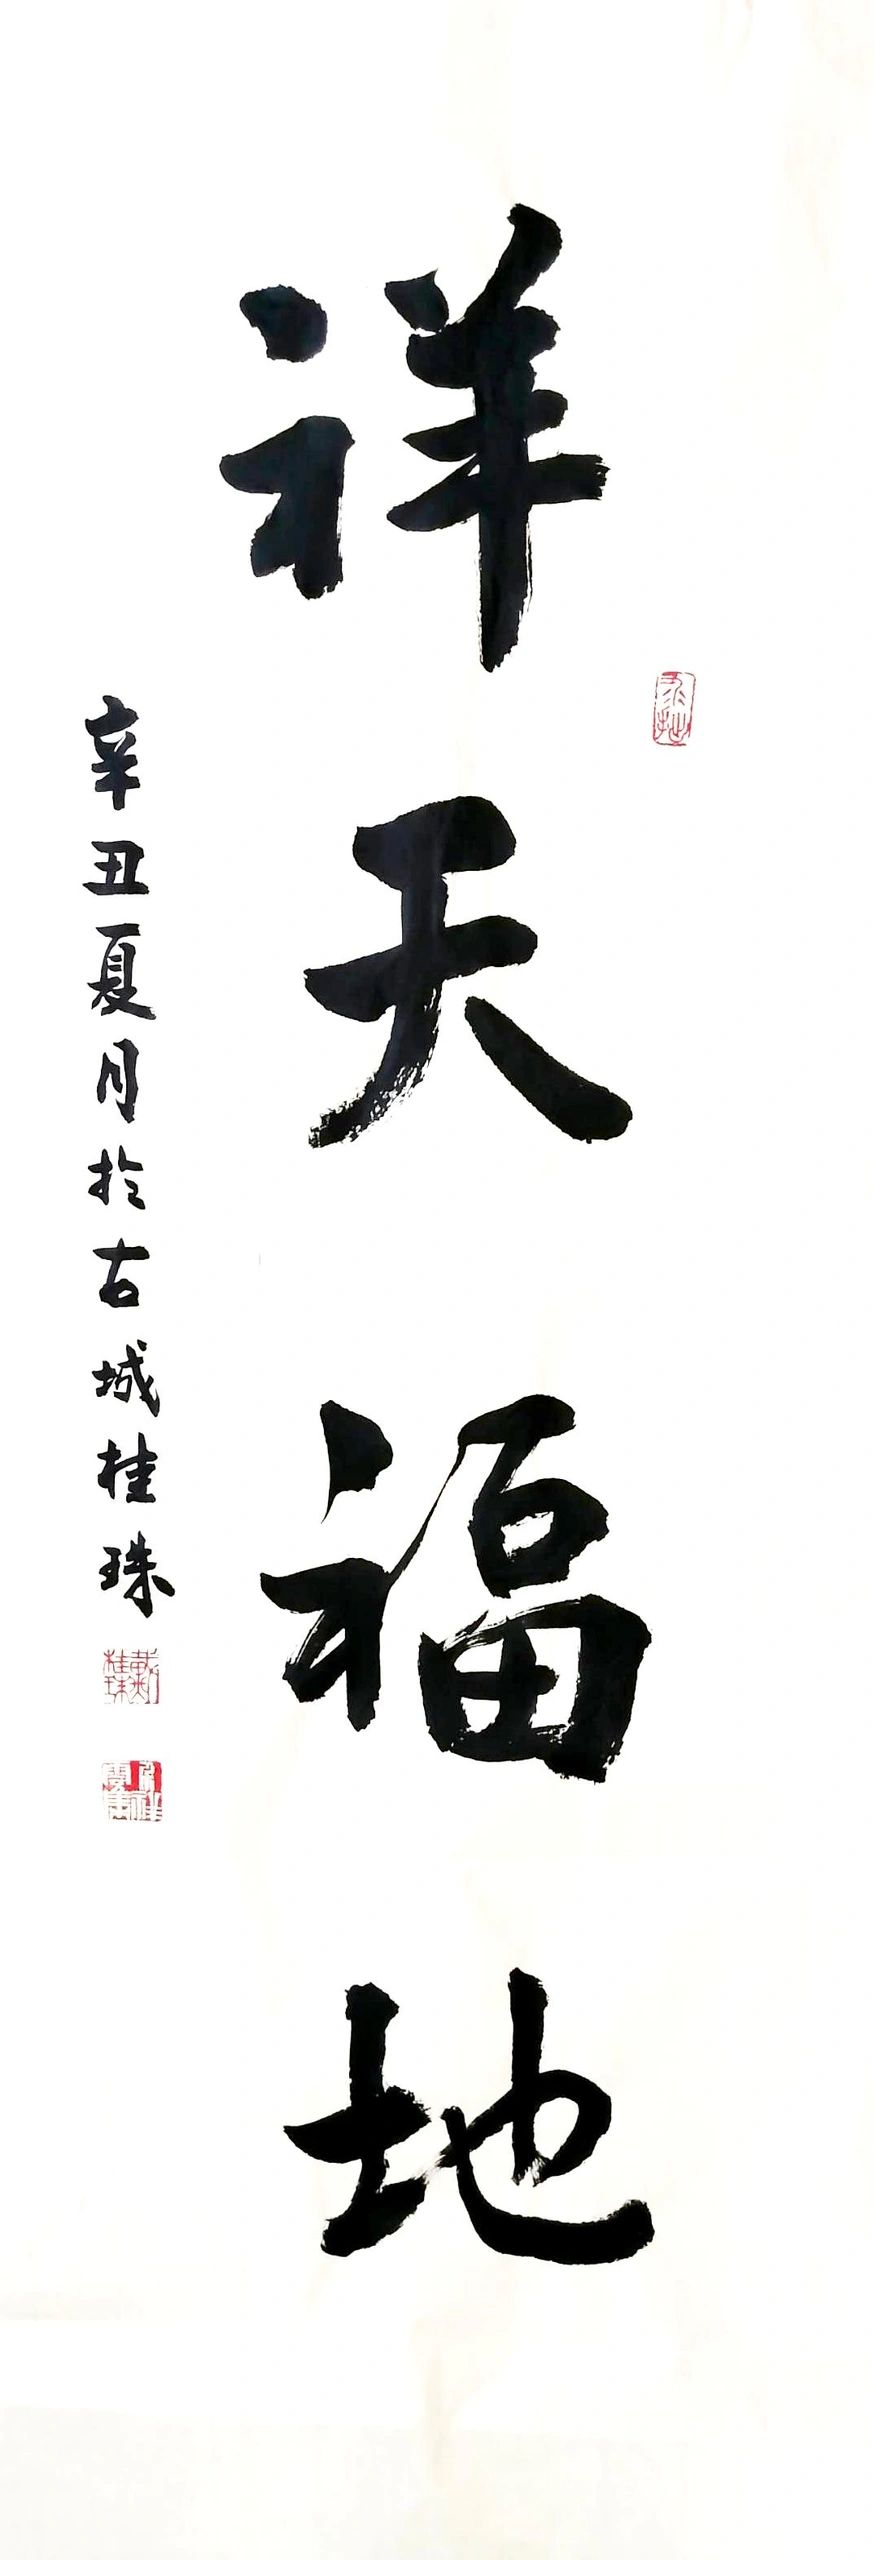 祥天福地
辛丑夏月於古城桂珠